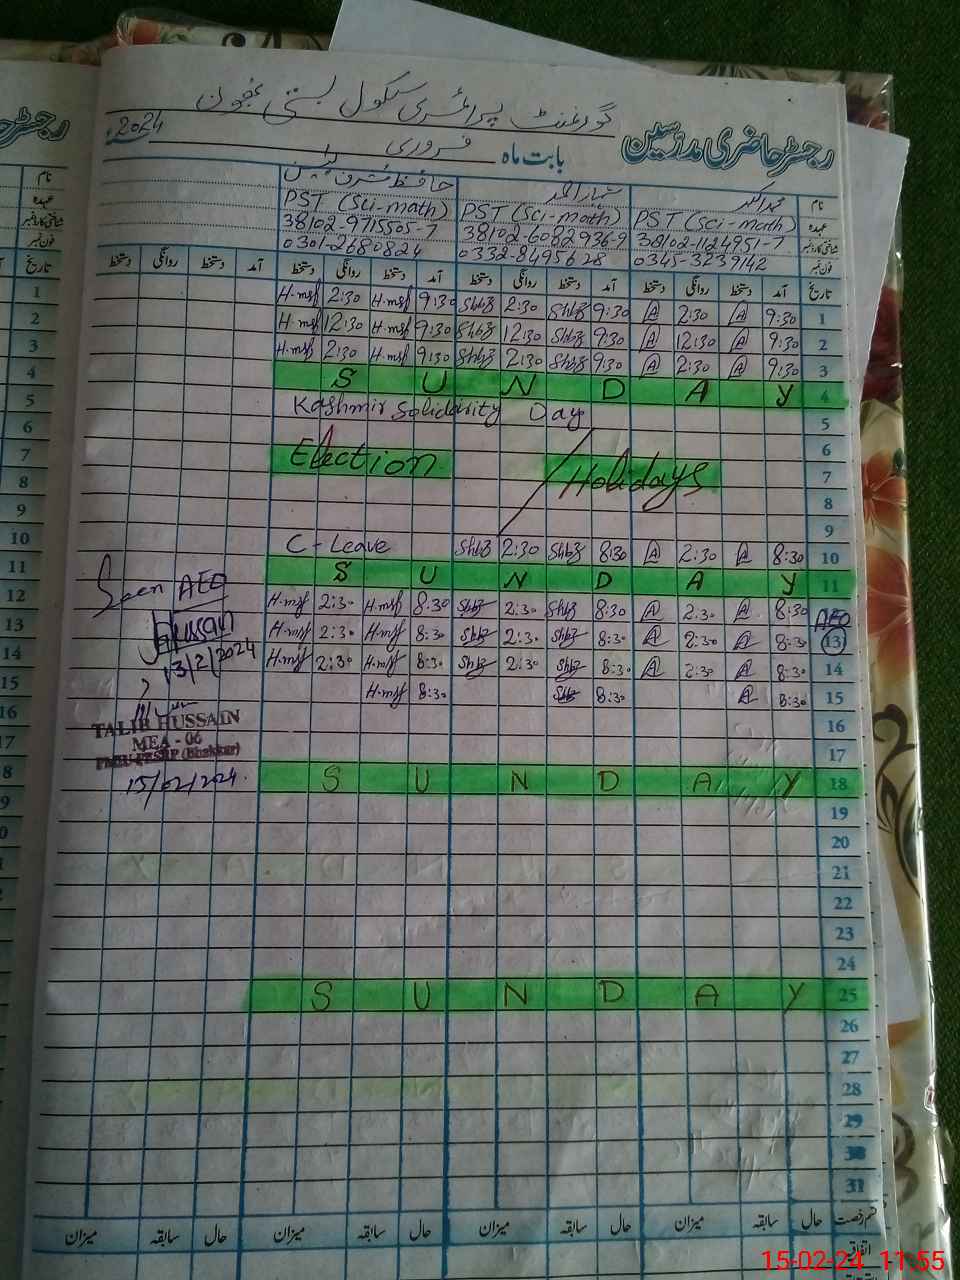 گورنمنٹ پرائمری سکول بستی
رجسٹر حاضری مدرسین
بابت ماہ فروری 2024ء
نام محمد اکبر
عہدہ PST (Sci-math) PST (Sci-math) PST (Sci-math)
شناختی کارڈ نمبر 38102-1124951-7 38102-6082936-9 38102-9715505-7
فون نمبر 0345-3239142 0332-8495628 0301-2680824
تاریخ آمد دستخط روانگی دستخط آمد دستخط روانگی دستخط آمد دستخط روانگی دستخط آمد دستخط روانگی دستخط
1 H.msf 2:30 H.msf 9:30 Shbz 2:30 Shbz 9:30 A 2:30 A 9:30 1
2 H.msf 12:30 H.msf 9:30 Shbz 12:30 Shbz 9:30 A 12:30 A 9:30 2
3 H.msf 2:30 H.msf 9:30 Shbz 2:30 Shbz 9:30 A 2:30 A 9:30 3
4 S U N D A Y 4
5 Kashmir Solidarity Day 5
6 6
7 Election Holidays 7
8 8
9 9
10 C-Leave Shbz 2:30 Shbz 8:30 A 2:30 A 8:30 10
11 S U N D A Y 11
12 H.msf 2:30 H.msf 8:30 Shbz 2:30 Shbz 8:30 A 2:30 A 8:30 AEO
13 H.msf 2:30 H.msf 8:30 Shbz 2:30 Shbz 8:30 A 2:30 A 8:30 13
14 H.msf 2:30 H.msf 8:30 Shbz 2:30 Shbz 8:30 A 2:30 A 8:30 14
15 H.msf 8:30 Shbz 8:30 A 8:30 15
Seen AEO
Hussan
13/2/2024
TALIB HUSSAIN
MEA - 06
(Bhakkar)
15/02/2024
16 16
17 17
18 S U N D A Y 18
19
20
21
22
23
24
25 S U N D A Y 25
26
27
28
29
30
31
قسم رخصت حال سابقہ میزان حال سابقہ میزان حال سابقہ میزان حال سابقہ میزان
اتفاقیہ
15-02-24 11:55